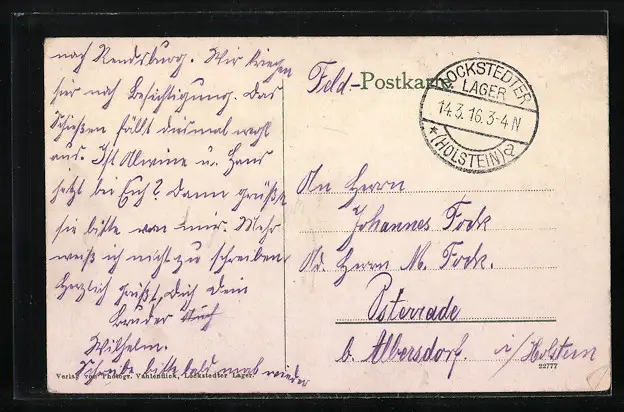 nach Rendsburg. Wir kriegen
hier noch Besichtigung. Das
Schießen fällt diesmal wohl
aus. Ist Alwine u. Hans
jetzt bei Euch? Dann grüße
sie bitte von mir. Mehr
weiß ich nicht zu schreiben.
Herzlich grüßt Dich Dein
Bruder
Wilhelm.
Schreibe bitte bald mal wieder
Verlag von Photogr. Vahlendick, Lockstedter Lager.
Feld-Postkarte
LOCKSTEDTER
LAGER
14.3.16.3-4N
*(HOLSTEIN)a
An Herrn
Johannes Fock
Ad. Herrn M. Fock.
Osterrade
b. Albersdorf. i/Holstein
22777